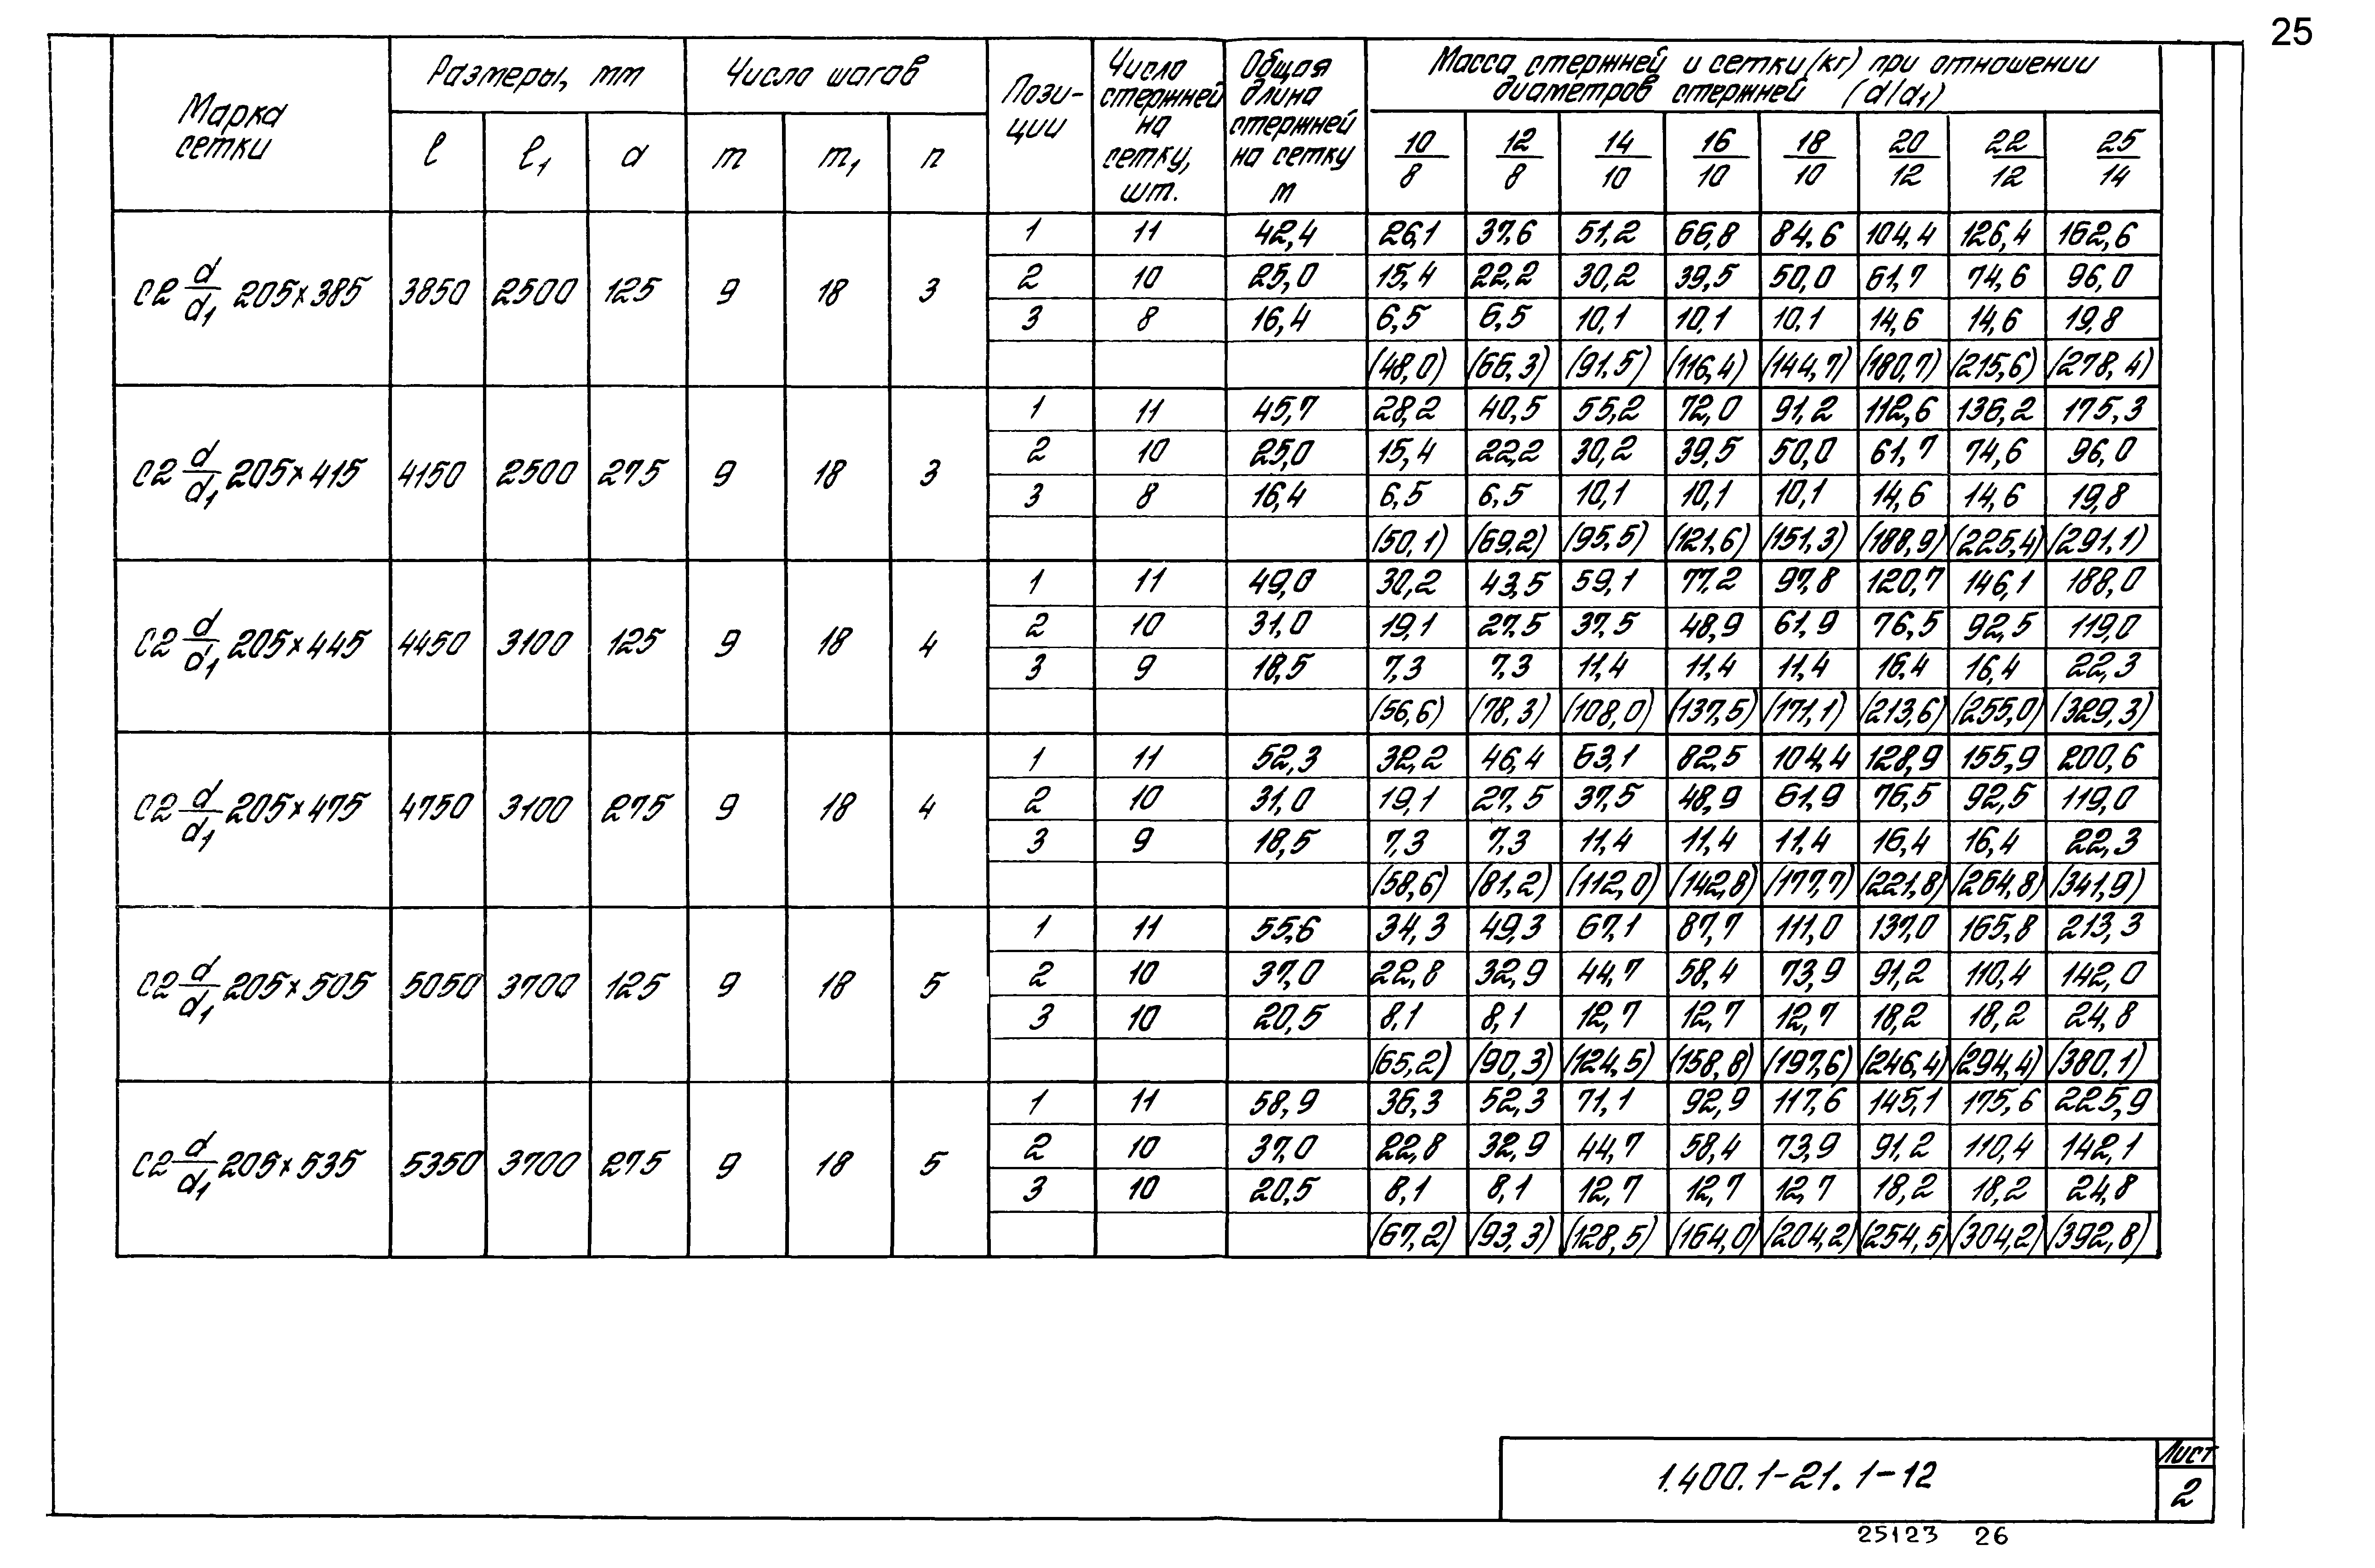 25
Марка сетки | Размеры, мм | Число шагов | Позиции | Число стержней на сетку, шт. | Общая длина стержней на сетку м | Масса стержней и сетки (кг) при отношении диаметров стержней (d/d1)
ℓ | ℓ1 | a | m | m1 | n | 10/8 | 12/8 | 14/10 | 16/10 | 18/10 | 20/12 | 22/12 | 25/14
С2 d/d1 205×385 | 3850 | 2500 | 125 | 9 | 18 | 3
1 | 11 | 42,4 | 26,1 | 37,6 | 51,2 | 66,8 | 84,6 | 104,4 | 126,4 | 162,6
2 | 10 | 25,0 | 15,4 | 22,2 | 30,2 | 39,5 | 50,0 | 61,7 | 74,6 | 96,0
3 | 8 | 16,4 | 6,5 | 6,5 | 10,1 | 10,1 | 10,1 | 14,6 | 14,6 | 19,8
(48,0) | (66,3) | (91,5) | (116,4) | (144,7) | (180,7) | (215,6) | (278,4)
С2 d/d1 205×415 | 4150 | 2500 | 275 | 9 | 18 | 3
1 | 11 | 45,7 | 28,2 | 40,5 | 55,2 | 72,0 | 91,2 | 112,6 | 136,2 | 175,3
2 | 10 | 25,0 | 15,4 | 22,2 | 30,2 | 39,5 | 50,0 | 61,7 | 74,6 | 96,0
3 | 8 | 16,4 | 6,5 | 6,5 | 10,1 | 10,1 | 10,1 | 14,6 | 14,6 | 19,8
(50,1) | (69,2) | (95,5) | (121,6) | (151,3) | (188,9) | (225,4) | (291,1)
С2 d/d1 205×445 | 4450 | 3100 | 125 | 9 | 18 | 4
1 | 11 | 49,0 | 30,2 | 43,5 | 59,1 | 77,2 | 97,8 | 120,7 | 146,1 | 188,0
2 | 10 | 31,0 | 19,1 | 27,5 | 37,5 | 48,9 | 61,9 | 76,5 | 92,5 | 119,0
3 | 9 | 18,5 | 7,3 | 7,3 | 11,4 | 11,4 | 11,4 | 16,4 | 16,4 | 22,3
(56,6) | (78,3) | (108,0) | (137,5) | (171,1) | (213,6) | (255,0) | (329,3)
С2 d/d1 205×475 | 4750 | 3100 | 275 | 9 | 18 | 4
1 | 11 | 52,3 | 32,2 | 46,4 | 63,1 | 82,5 | 104,4 | 128,9 | 155,9 | 200,6
2 | 10 | 31,0 | 19,1 | 27,5 | 37,5 | 48,9 | 61,9 | 76,5 | 92,5 | 119,0
3 | 9 | 18,5 | 7,3 | 7,3 | 11,4 | 11,4 | 11,4 | 16,4 | 16,4 | 22,3
(58,6) | (81,2) | (112,0) | (142,8) | (177,7) | (221,8) | (264,8) | (341,9)
С2 d/d1 205×505 | 5050 | 3700 | 125 | 9 | 18 | 5
1 | 11 | 55,6 | 34,3 | 49,3 | 67,1 | 87,7 | 111,0 | 137,0 | 165,8 | 213,3
2 | 10 | 37,0 | 22,8 | 32,9 | 44,7 | 58,4 | 73,9 | 91,2 | 110,4 | 142,0
3 | 10 | 20,5 | 8,1 | 8,1 | 12,7 | 12,7 | 12,7 | 18,2 | 18,2 | 24,8
(65,2) | (90,3) | (124,5) | (158,8) | (197,6) | (246,4) | (294,4) | (380,1)
С2 d/d1 205×535 | 5350 | 3700 | 275 | 9 | 18 | 5
1 | 11 | 58,9 | 36,3 | 52,3 | 71,1 | 92,9 | 117,6 | 145,1 | 175,6 | 225,9
2 | 10 | 37,0 | 22,8 | 32,9 | 44,7 | 58,4 | 73,9 | 91,2 | 110,4 | 142,1
3 | 10 | 20,5 | 8,1 | 8,1 | 12,7 | 12,7 | 12,7 | 18,2 | 18,2 | 24,8
(67,2) | (93,3) | (128,5) | (164,0) | (204,2) | (254,5) | (304,2) | (392,8)
1.400.1-21.1-12
Лист
2
25123 26